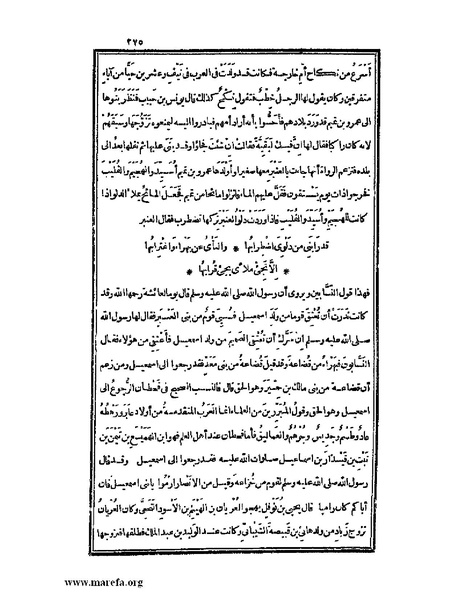 ٢٦٥
أسرع من نكاح أم خارجة فكانت قد ولدت فى العرب فى نيف وعشرين حيا من آباء
متفرقين وكان يقول لها الرجل خطب فتقول نكح كذلك قال يونس بن حبيب فنظر بنوها
الى عمرو بن تميم قد ورد بلادهم فأحسوا بأنه أراد أمهم فبادروا اليه ليمنعوه تزوجها وسبقهم
لانه كان راكبا فقال لها ان فيك لبقية فقالت ان شئت فجاؤا وقد بنى عليها ثم نقلها بعد الى
بلده فتزعم الرواة أنها جاءت بالعنبر معها صغيرا وأولدها عمرو بن تميم أسيدا والهجيم والقليب
فخرجوا ذات يوم يستقون فقل عليهم الماء فانزلوا مائحا من تميم فجعل المائح يملأ الدلو اذا
كانت للهجيم وأسيد والقليب فاذا وردت دلو العنبر تركها تضطرب فقال العنبر
قد رابنى من دلوى اضطرابها * والنأى عن بهراء واغترابها
* الا تجئ ملأى يجئ قرابها *
فهذا قول النسابين ويروى أن رسول الله صلى الله عليه وسلم قال يوما لعائشة رحمها الله وقد
كانت نذرت أن تعتق قوما من ولد اسمعيل فسبى قوم من بنى العنبر فقال لها رسول الله
صلى الله عليه وسلم ان سرك أن تعتقى الصميم من ولد اسمعيل فأعتقى من هؤلاء فقال
النسابون فبهراء من قضاعة وقد قيل قضاعة من بنى معد فقد رجعوا الى اسمعيل ومن زعم
أن قضاعة من بنى مالك بن حمير وهو الحق قال فالنسب الصحيح فى قحطان الرجوع الى
اسمعيل وهو الحق وقول المبرزين من العلماء انما العرب المتقدمة من أولاد عابر ورهطه
عاد وطسم وجديس وجرهم والعماليق فأما قحطان عند أهل العلم فهو ابن الهميسع بن تيمن بن
نبت بن قيذار بن اسماعيل صلوات الله عليه فقد رجعوا الى اسمعيل وقد قال
رسول الله صلى الله عليه وسلم لقوم من خزاعة وقيل من الانصار ارموا يا بنى اسمعيل فان
أباكم كان راميا قال يحيى بن نوفل يهجو العريان بن الهيثم بن الاسود النخعى وكان العريان
تزوج زباد من ولد هانئ بن قبيصة الشيبانى وكانت عند الوليد بن عبد الملك فطلقها فتزوجها
www.marefa.org